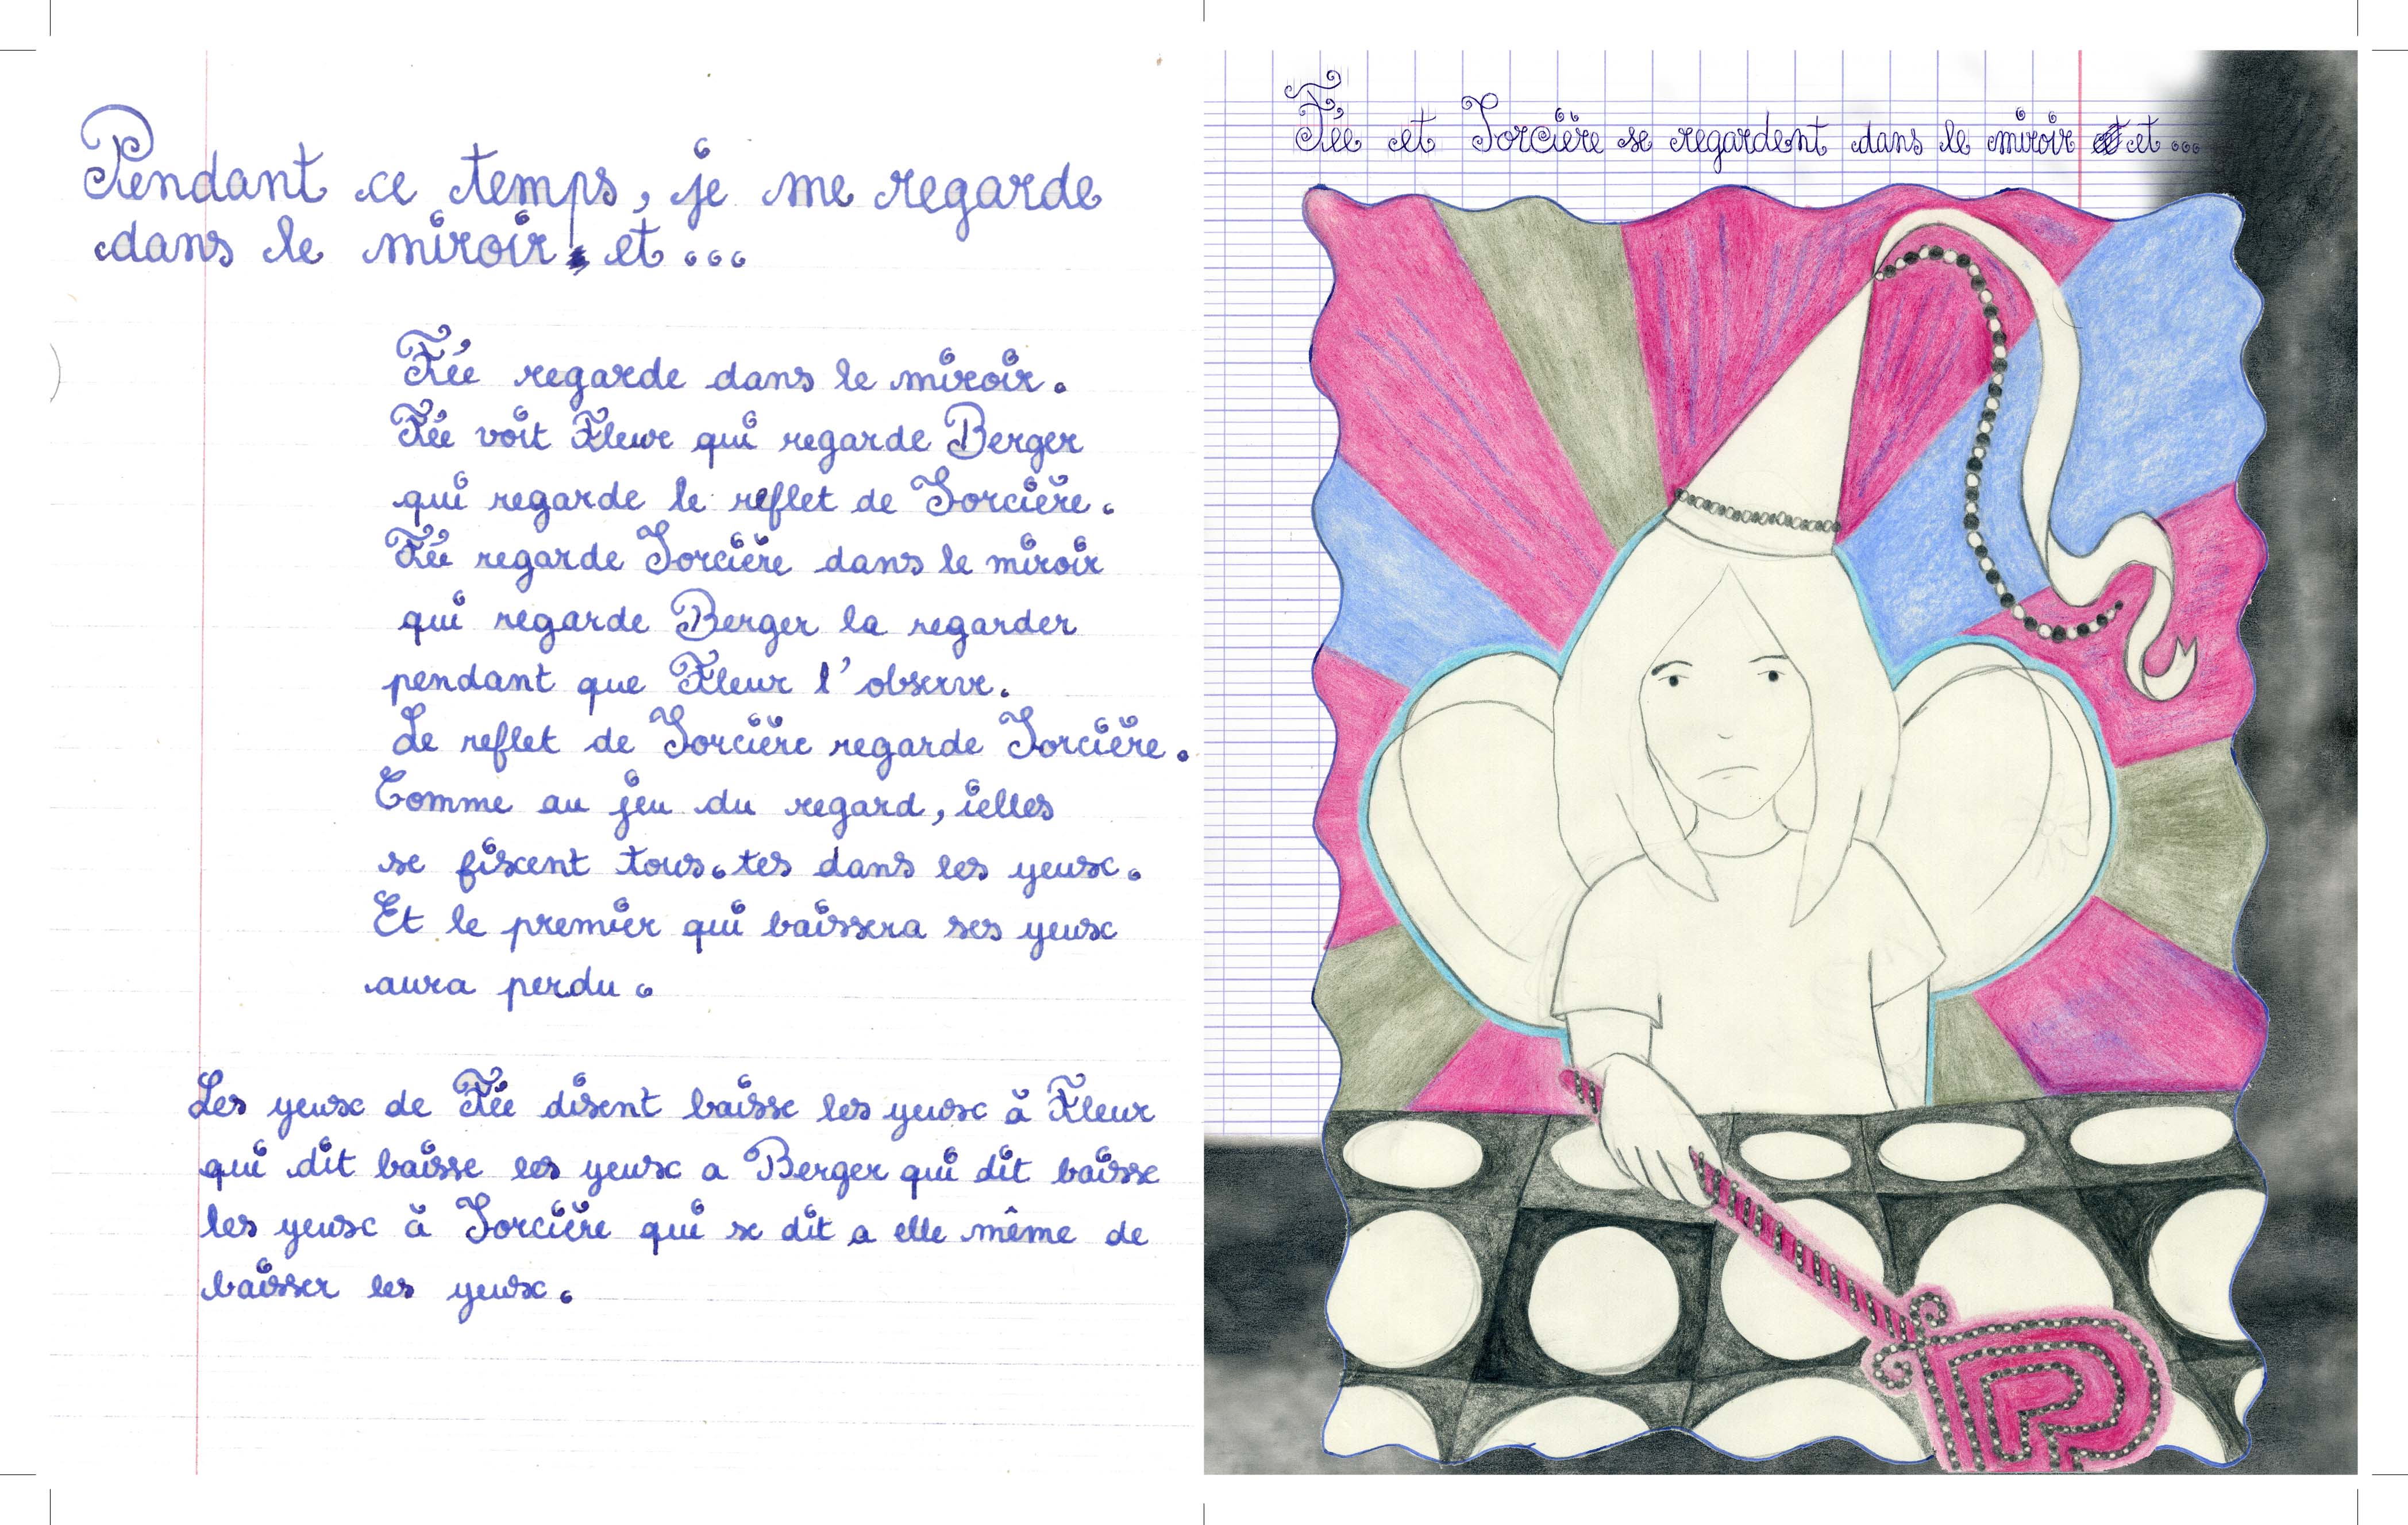 Pendant ce temps, je me regarde
dans le miroir, et...
Fée regarde dans le miroir.
Fée voit Fleur qui regarde Berger
qui regarde le reflet de Sorcière.
Fée regarde Sorcière dans le miroir
qui regarde Berger la regarder
pendant que Fleur l'observe.
Le reflet de Sorcière regarde Sorcière.
Comme au jeu du regard, ielles
se fixent tous.tes dans les yeux.
Et le premier qui baissera ses yeux
aura perdu.
Les yeux de Fée disent baisse les yeux à Fleur
qui dit baisse les yeux a Berger qui dit baisse
les yeux à Sorcière qui se dit a elle même de
baisser les yeux.
Fée et Sorcière se regardent dans le miroir et...